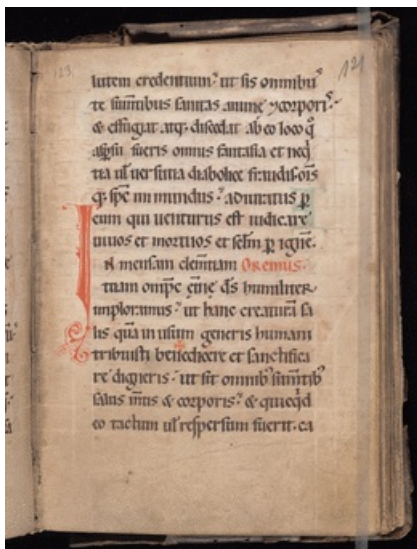 123
121
lutem credentium ut sis omnibꝰ
te sum̄tibus sanitas anime ⁊ corporiˢ
& effugiat atq; discedat ab eo loco q̊
asꝑsū fueris omnis fantasia et neq̇
tia uł uersutia diabolice fraudis. oīs
q; sps̄ inmundus adiuratus ꝑ
eum qui uenturus est iudicare
uiuos et mortuos et sc̄lm ꝑ ignē.
I n mensam clem̄tiam Oremus.
tuam omp̄c et̄ne d̄s humiliter
imploramus ut hanc creaturā sa
lis quā in usum generis humani
tribuisti bene✠dicere et sanctifica
re digneris ut sit omnibꝰ sum̄tibꝰ
salus m̄tis & corporis & quicq̇d
eo tactum uł respersum fuerit. ca